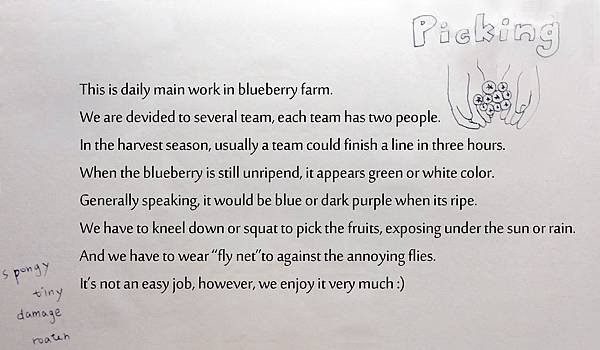 Picking
This is daily main work in blueberry farm.
We are devided to several team, each team has two people.
In the harvest season, usually a team could finish a line in three hours.
When the blueberry is still unripend, it appears green or white color.
Generally speaking, it would be blue or dark purple when its ripe.
We have to kneel down or squat to pick the fruits, exposing under the sun or rain.
And we have to wear “fly net”to against the annoying flies.
It’s not an easy job, however, we enjoy it very much :)
spongy
tiny
damage